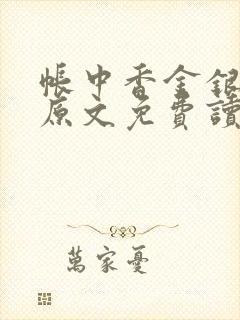 帳中香金銀
原文免費讀
萬家憂